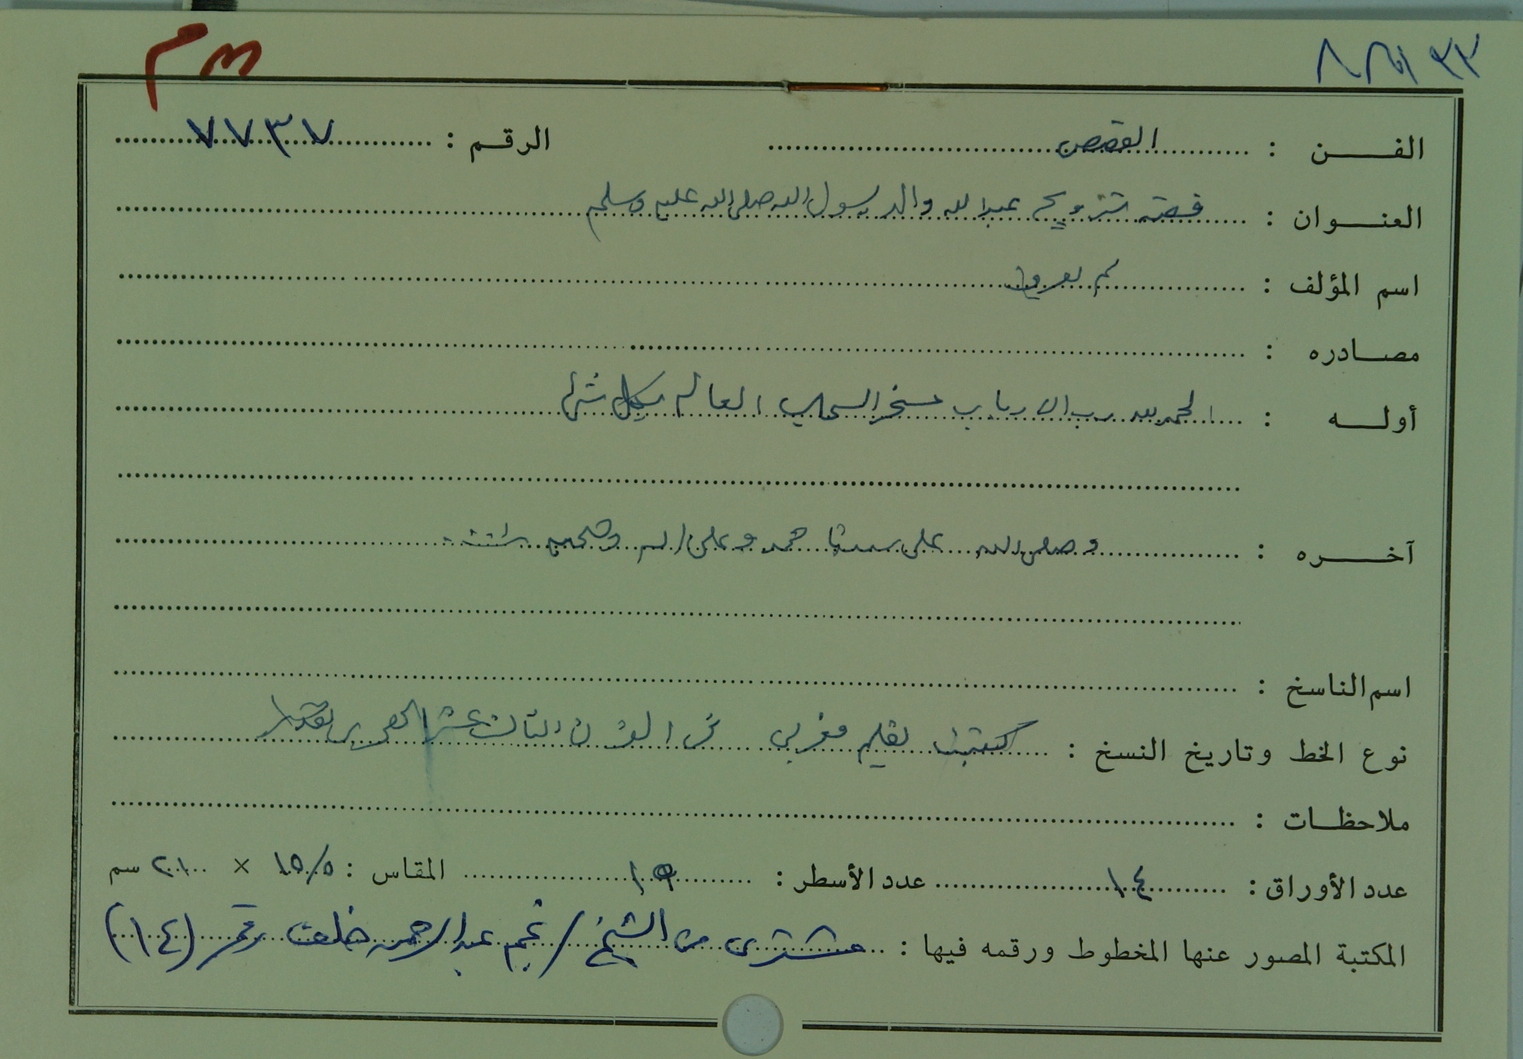 الفن : القصص الرقم : ٧٧٣٧
العنوان : قصة تزويج عبدالله والد رسول الله صلى الله عليه وسلم
اسم المؤلف : لم يعرف
مصادره :
أوله : الحمد لله رب الارباب مسخر السحاب العالم بكل شئ
آخره : وصلى الله على سيدنا محمد وعلى اله وصحبه
اسم الناسخ :
نوع الخط وتاريخ النسخ : كتبت بقلم مغربي في القرن الثالث عشر الهجري تقديرا
ملاحظات :
عدد الأوراق : ١٤ عدد الأسطر : ١٩ المقاس : ١٥/٥ × سم
المكتبة المصور عنها المخطوط ورقمه فيها : مشترى من الشيخ / نجم عبدالرحمن خلف رقم (١٤)